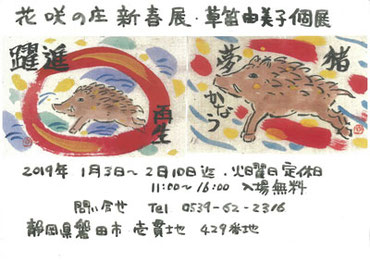 花咲の庄 新春展・草笛由美子個展
躍進
再生
夢かなう
猪
2019年 1月3日～2月10日迄・火曜日定休日
11:00～16:00 入場無料
問い合せ Tel 0539-62-2316
静岡県磐田市 壱貫地 429番地